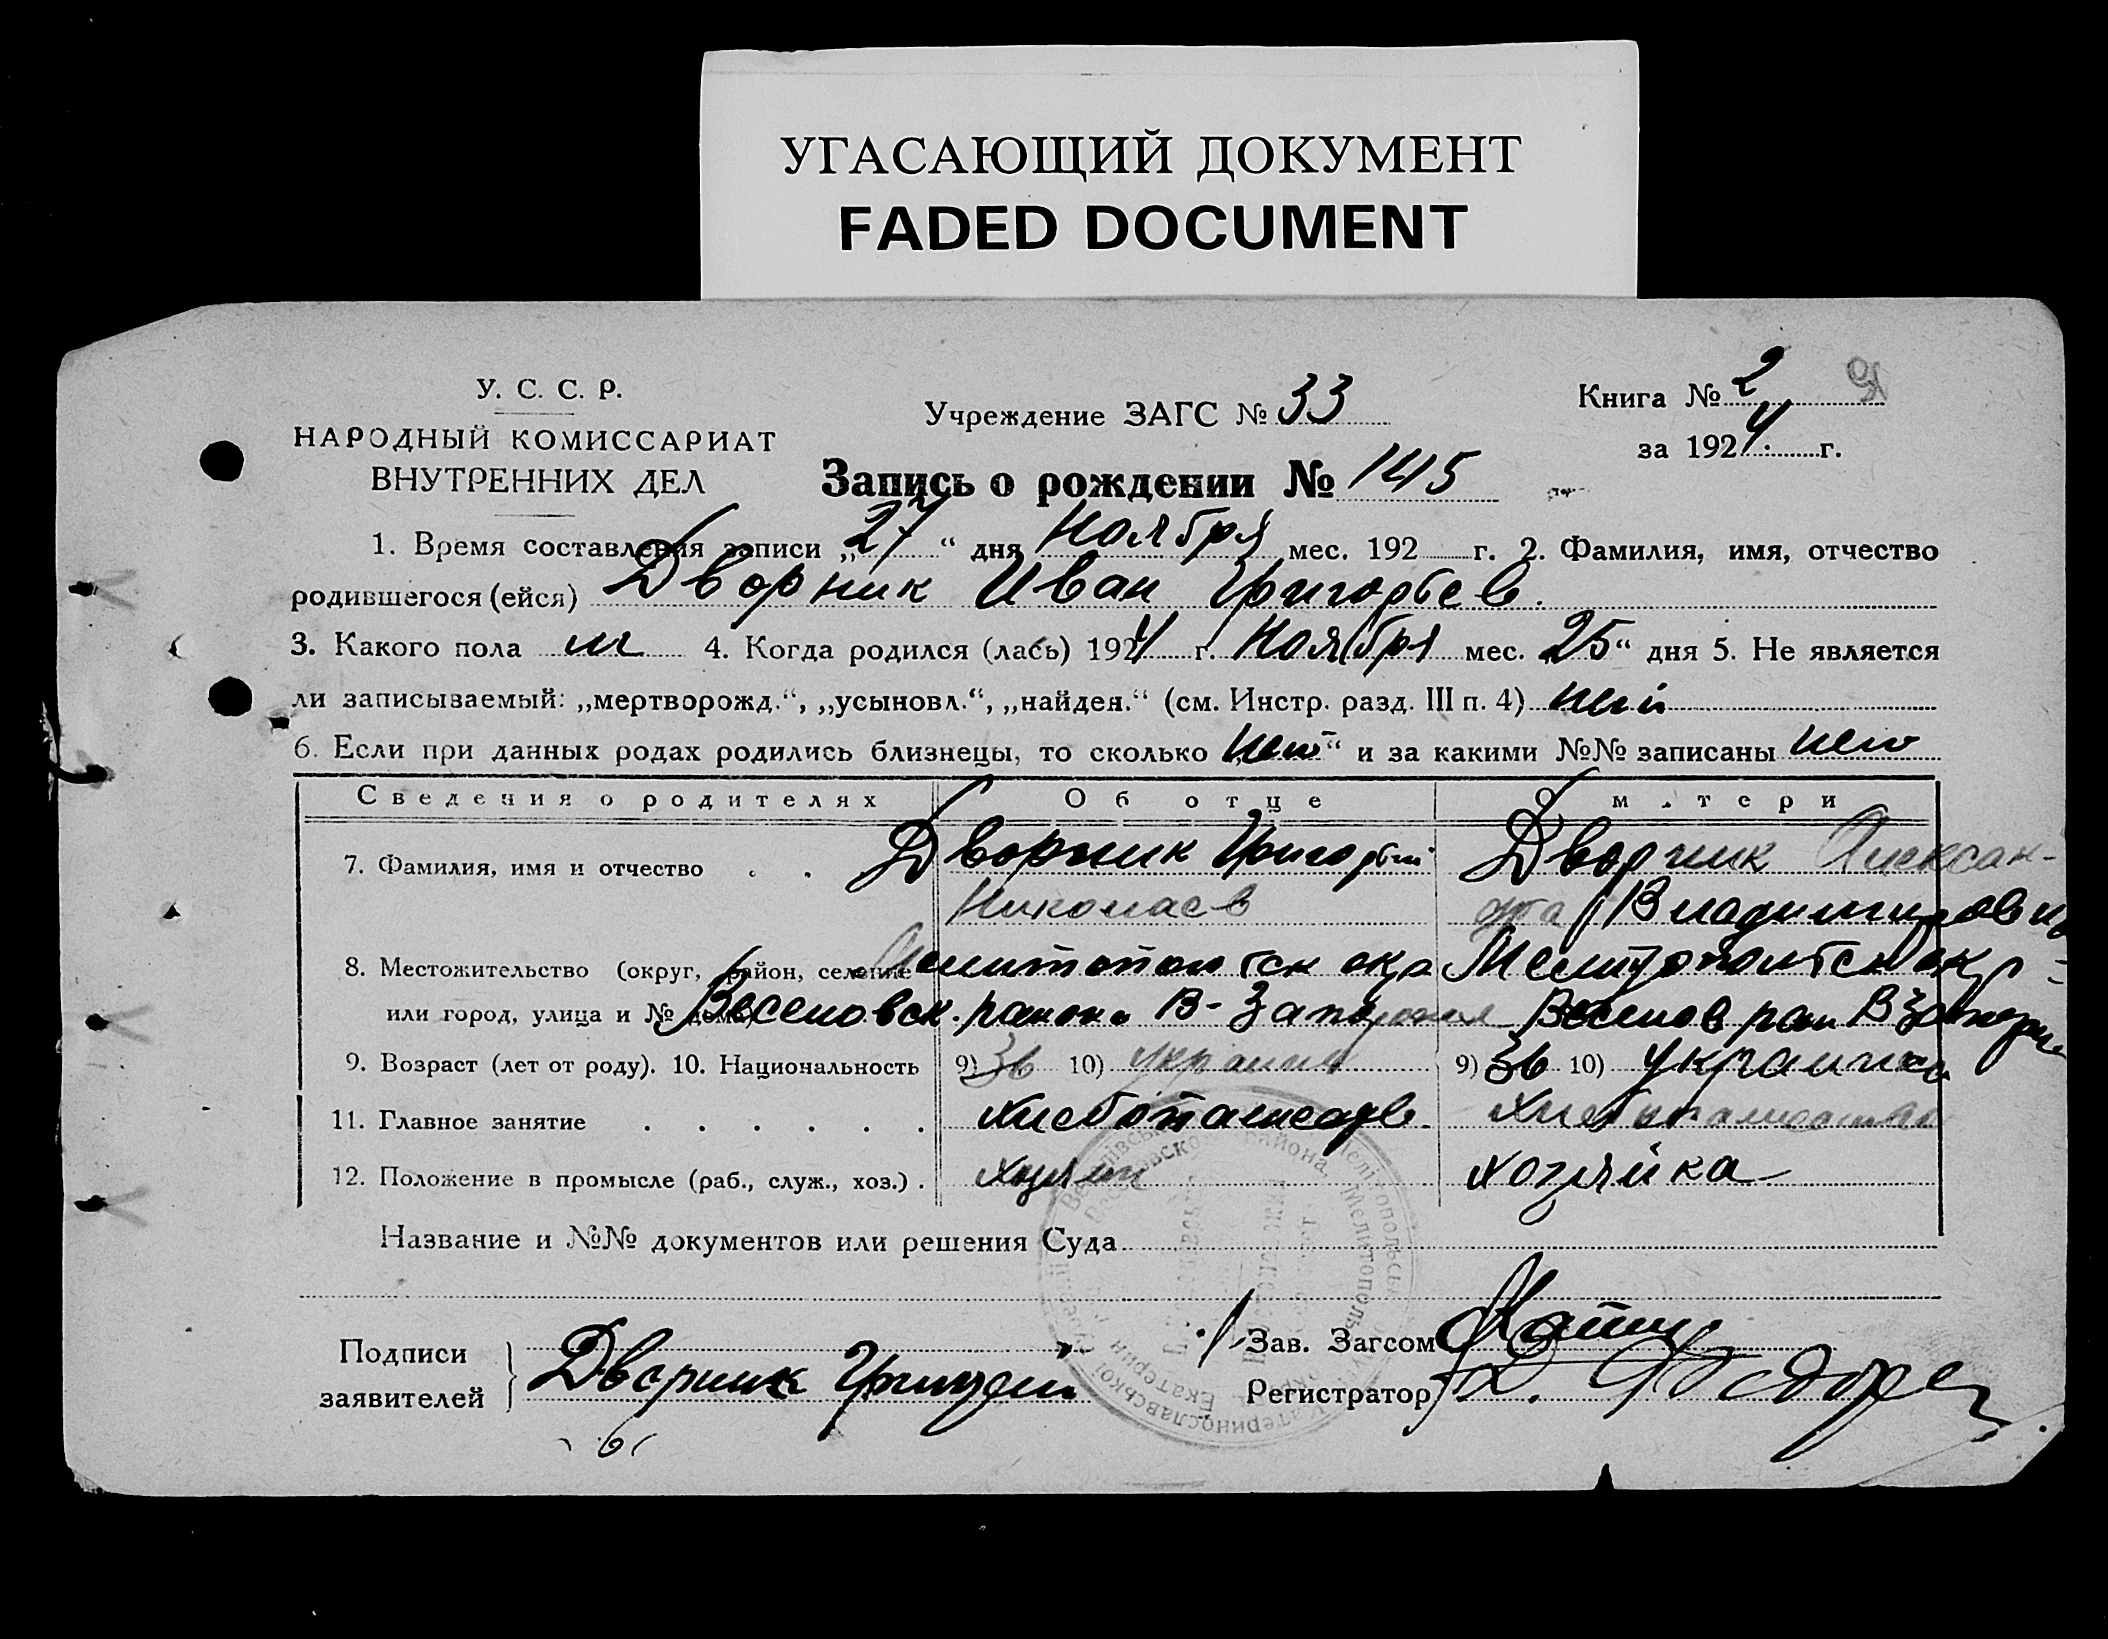 УГАСАЮЩИЙ ДОКУМЕНТ
FADED DOCUMENT
У. С. С. Р.
НАРОДНЫЙ КОМИССАРИАТ
ВНУТРЕННИХ ДЕЛ
Учреждение ЗАГС № 33
Книга № 2
за 1924 г.
Запись о рождении № 145
1. Время составления записи „27“ дня Ноября мес. 192 г. 2. Фамилия, имя, отчество
родившегося (ейся) Дворник Иван Григорьев.
3. Какого пола м 4. Когда родился (лась) 1924 г. Ноября мес. 25“ дня 5. Не является
ли записываемый: „мертворожд.“, „усыновл.“, „найден.“ (см. Инстр. разд. III п. 4) нет
6. Если при данных родах родились близнецы, то сколько „нет“ и за какими №№ записаны нет
Сведения о родителях Об отце О матери
7. Фамилия, имя и отчество . . Дворник Григорий Дворник Алексан-
Николаев дра Владимировн
8. Местожительство (округ, район, селение Мелитопольск окр Мелитопольск окр
или город, улица и № дома) Веселовск. района В-Запорожья Веселов рай В Запорож
9. Возраст (лет от роду). 10. Национальность 9) 36 10) украин 9) 36 10) украинка
11. Главное занятие . . . . . . Хлебопашеств. Хлебопашество
12. Положение в промысле (раб., служ., хоз.) . хозяин хозяйка
Название и №№ документов или решения Суда
Подписи
заявителей } Дворник Григорий
Зав. Загсом
Регистратор